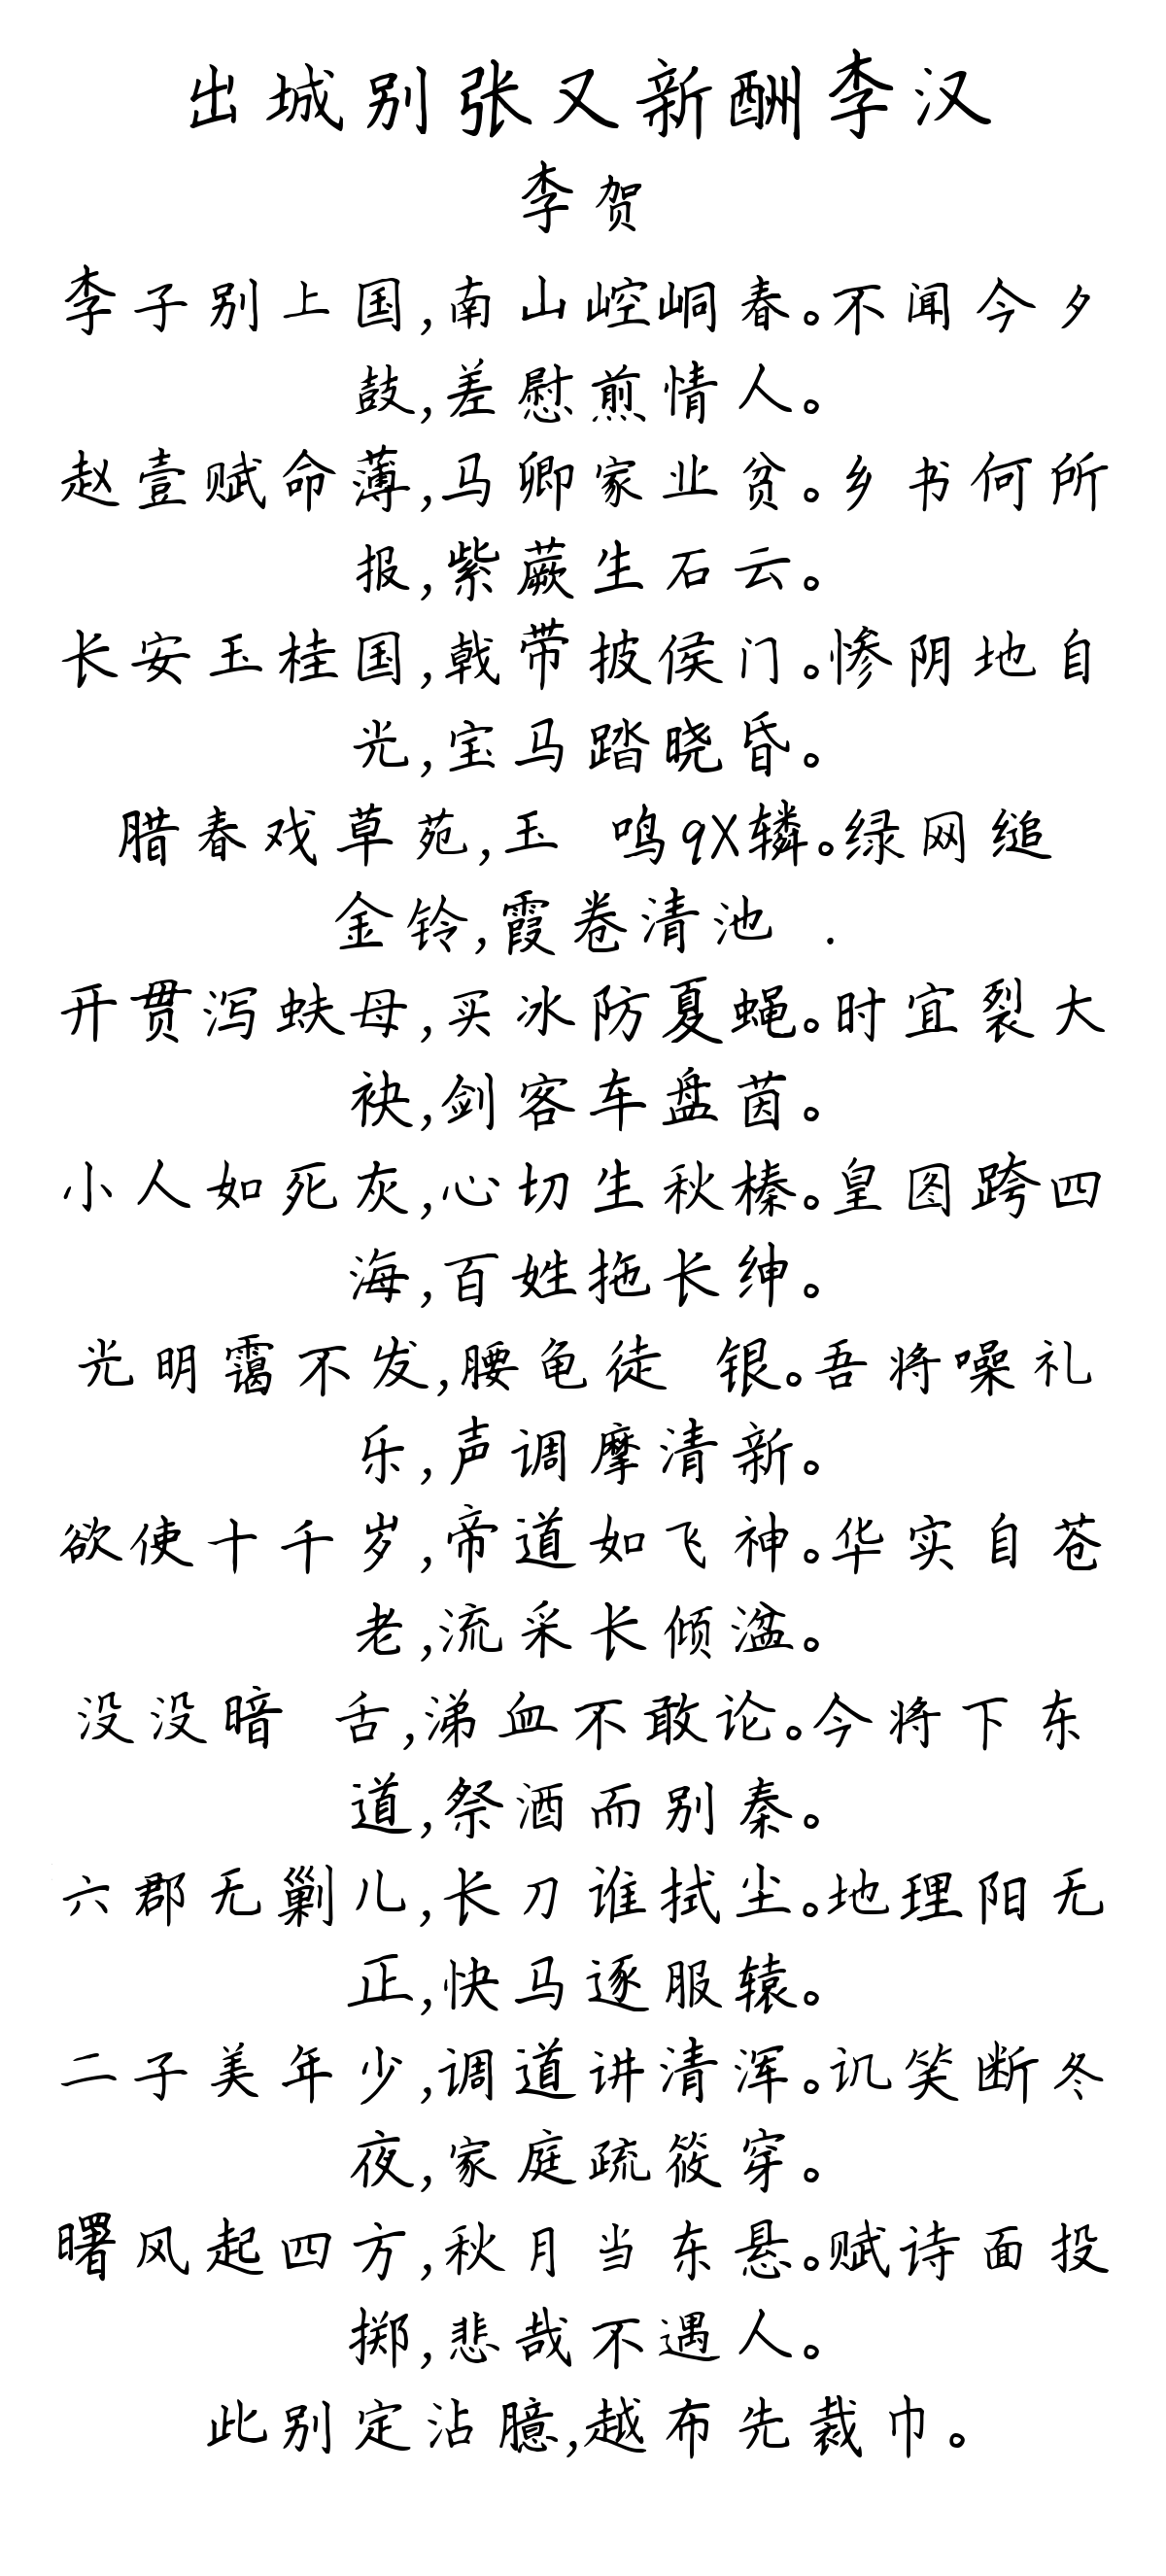 出城别张又新酬李汉
李贺
李子别上国,南山崆峒春。不闻今夕
鼓,差慰煎情人。
赵壹赋命薄,马卿家业贫。乡书何所
报,紫蕨生石云。
长安玉桂国,戟带披侯门。惨阴地自
光,宝马踏晓昏。
腊春戏草苑,玉 鸣qX辚。绿网缒
金铃,霞卷清池 .
开贯泻蚨母,买冰防夏蝇。时宜裂大
袂,剑客车盘茵。
小人如死灰,心切生秋榛。皇图跨四
海,百姓拖长绅。
光明霭不发,腰龟徒 银。吾将噪礼
乐,声调摩清新。
欲使十千岁,帝道如飞神。华实自苍
老,流采长倾湓。
没没暗 舌,涕血不敢论。今将下东
道,祭酒而别秦。
六郡无剿儿,长刀谁拭尘。地理阳无
正,快马逐服辕。
二子美年少,调道讲清浑。讥笑断冬
夜,家庭疏筱穿。
曙风起四方,秋月当东悬。赋诗面投
掷,悲哉不遇人。
此别定沾臆,越布先裁巾。